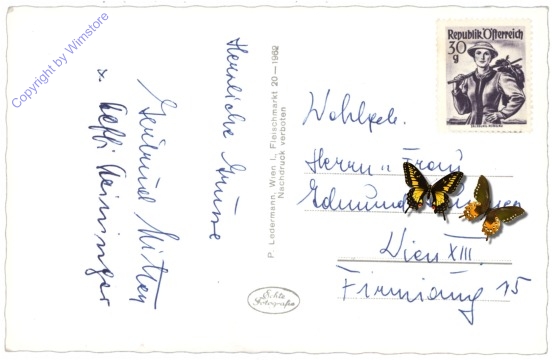 Copyright by Wimstore
Herzliche Grüsse
Gertrud
u. Steffi
P. Ledermann, Wien I., Fleischmarkt 20—1962
Nachdruck verboten
Echte
Fotografie
Republik Österreich
30
g
Wohlgeb.
Herrn u. Frau
Edmund
Wien XIII.
Firmiang 15